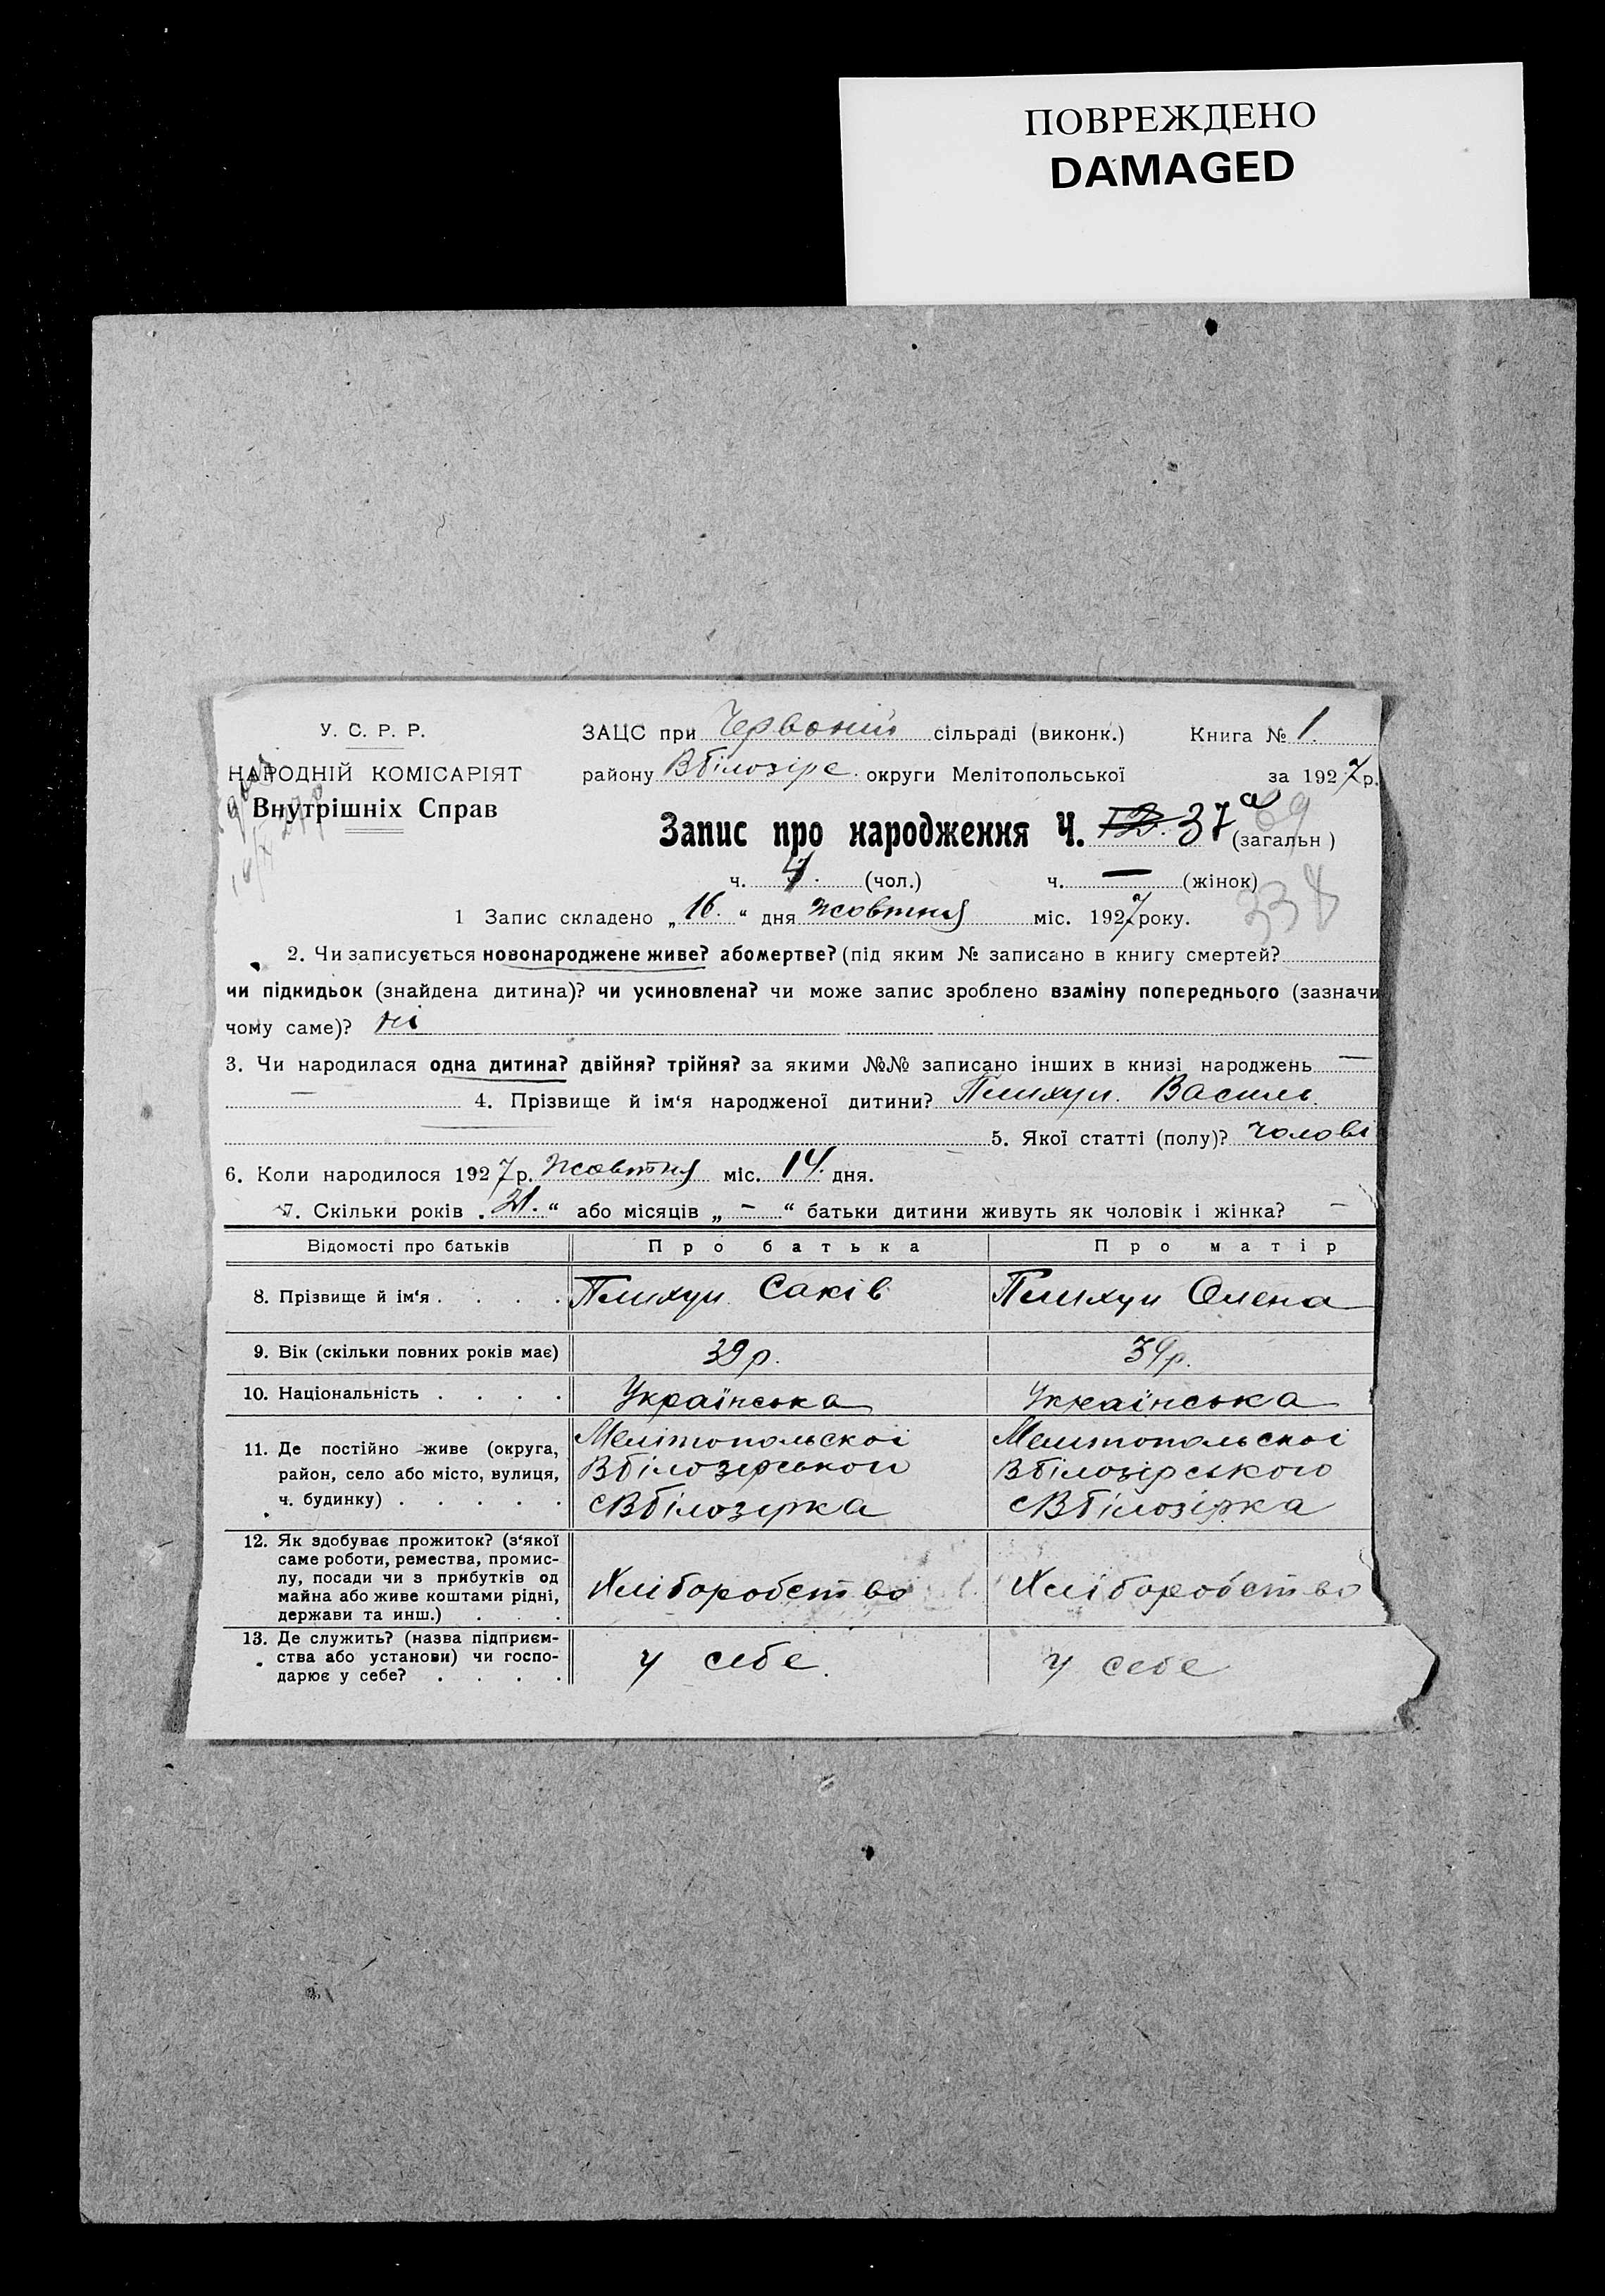 ПОВРЕЖДЕНО
DAMAGED
У. С. Р. Р.
НАРОДНІЙ КОМІСАРІЯТ
Внутрішніх Справ
ЗАЦС при Червоній сільраді (виконк.) Книга № 1.
району Вбілозіре округи Мелітопольської за 1927 р.
Запис про народження Ч. 37 а (загальн)
ч. 4. (чол.) ч. — (жінок)
1 Запис складено „16.“ дня жовтня міс. 1927 року.
2. Чи записується новонароджене живе? або мертве? (під яким № записано в книгу смертей?
чи підкидьок (знайдена дитина)? чи усиновлена? чи може запис зроблено взаміну попереднього (зазначи
чому саме)? ні
3. Чи народилася одна дитина? двійня? трійня? за якими №№ записано інших в книзі народжень —
— 4. Прізвище й ім‘я народженої дитини? Василь.
5. Якої статті (полу)? чолові
6. Коли народилося 1927 р. жовтня міс. 14. дня.
7. Скільки років „21.“ або місяців „ — “ батьки дитини живуть як чоловік і жінка? —
Відомості про батьків Про батька Про матір
8. Прізвище й ім‘я . . . . Саків Олена
9. Вік (скільки повних років має) 39 р. 39 р.
10. Національність . . . . Українська Українська
11. Де постійно живе (округа, район, село або місто, вулиця, ч. будинку) . . . . .
Мелітопольскоі Мелитопольскоі
Вбілозерського Вбілозірського
с Вбілозірка с Вбілозірка
12. Як здобуває прожиток? (з‘якої саме роботи, ремества, промислу, посади чи з прибутків од майна або живе коштами рідні, держави та инш.) . . .
Хліборобство Хліборобство
13. Де служить? (назва підприємства або установи) чи господарює у себе? . . . .
у себе. у себе